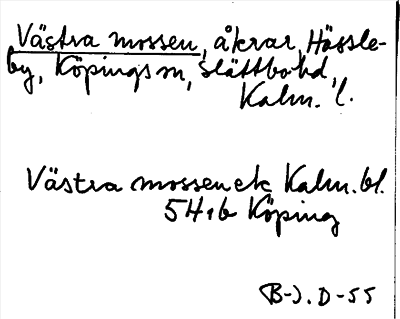 Västra mossen, åkrar, Hässle-
by, Köpings sn, Slättbo hd,
Kalm. l.
Västra mossen ek Kalm. bl.
54 1b Köping
B-J. D-55